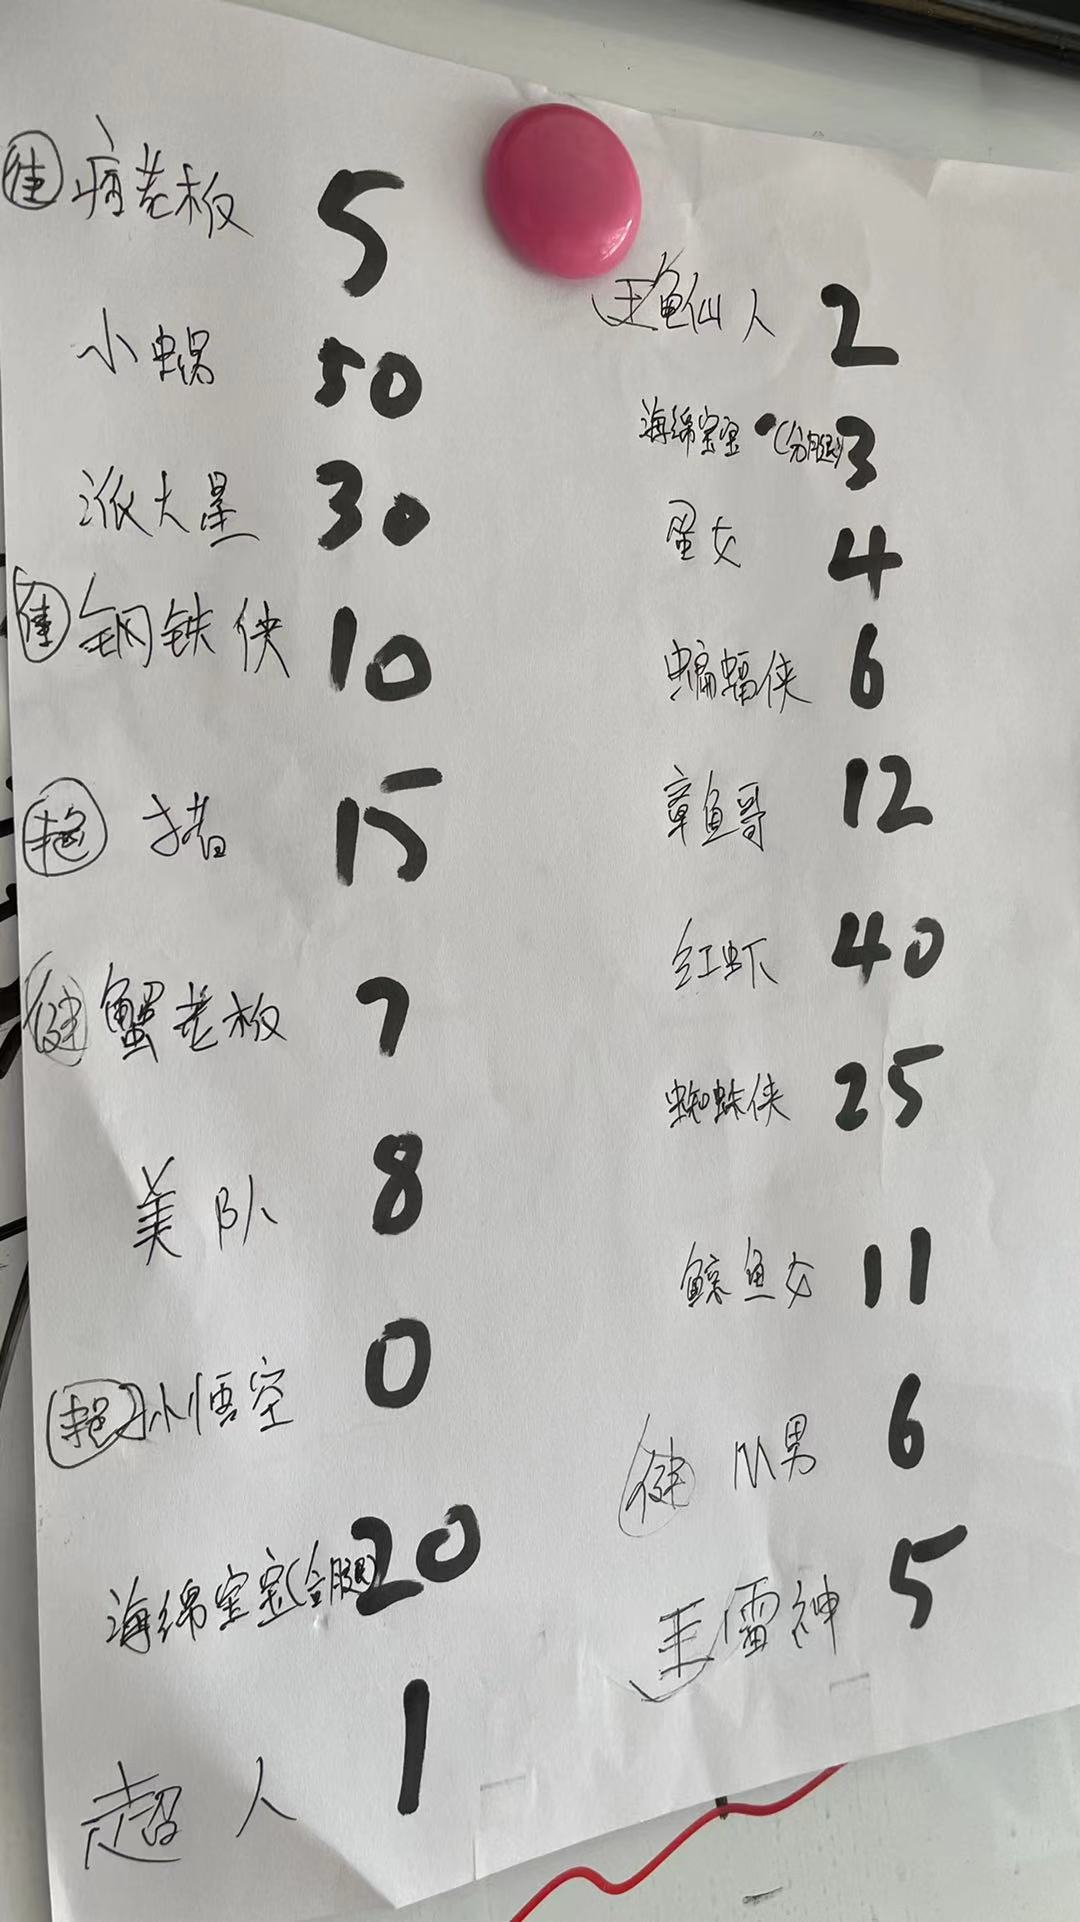 佳 痞老板 5
小蜗 50
派大星 30
佳 钢铁侠 10
艳 猪 15
健 蟹老板 7
美队 8
艳 孙悟空 0
海绵宝宝(合腿) 20
超人 1
王 龟仙人 2
海绵宝宝(分腿) 3
蛋女 4
蝙蝠侠 6
章鱼哥 12
红虾 40
蜘蛛侠 25
鲸鱼女 11
健 M男 6
王 雷神 5